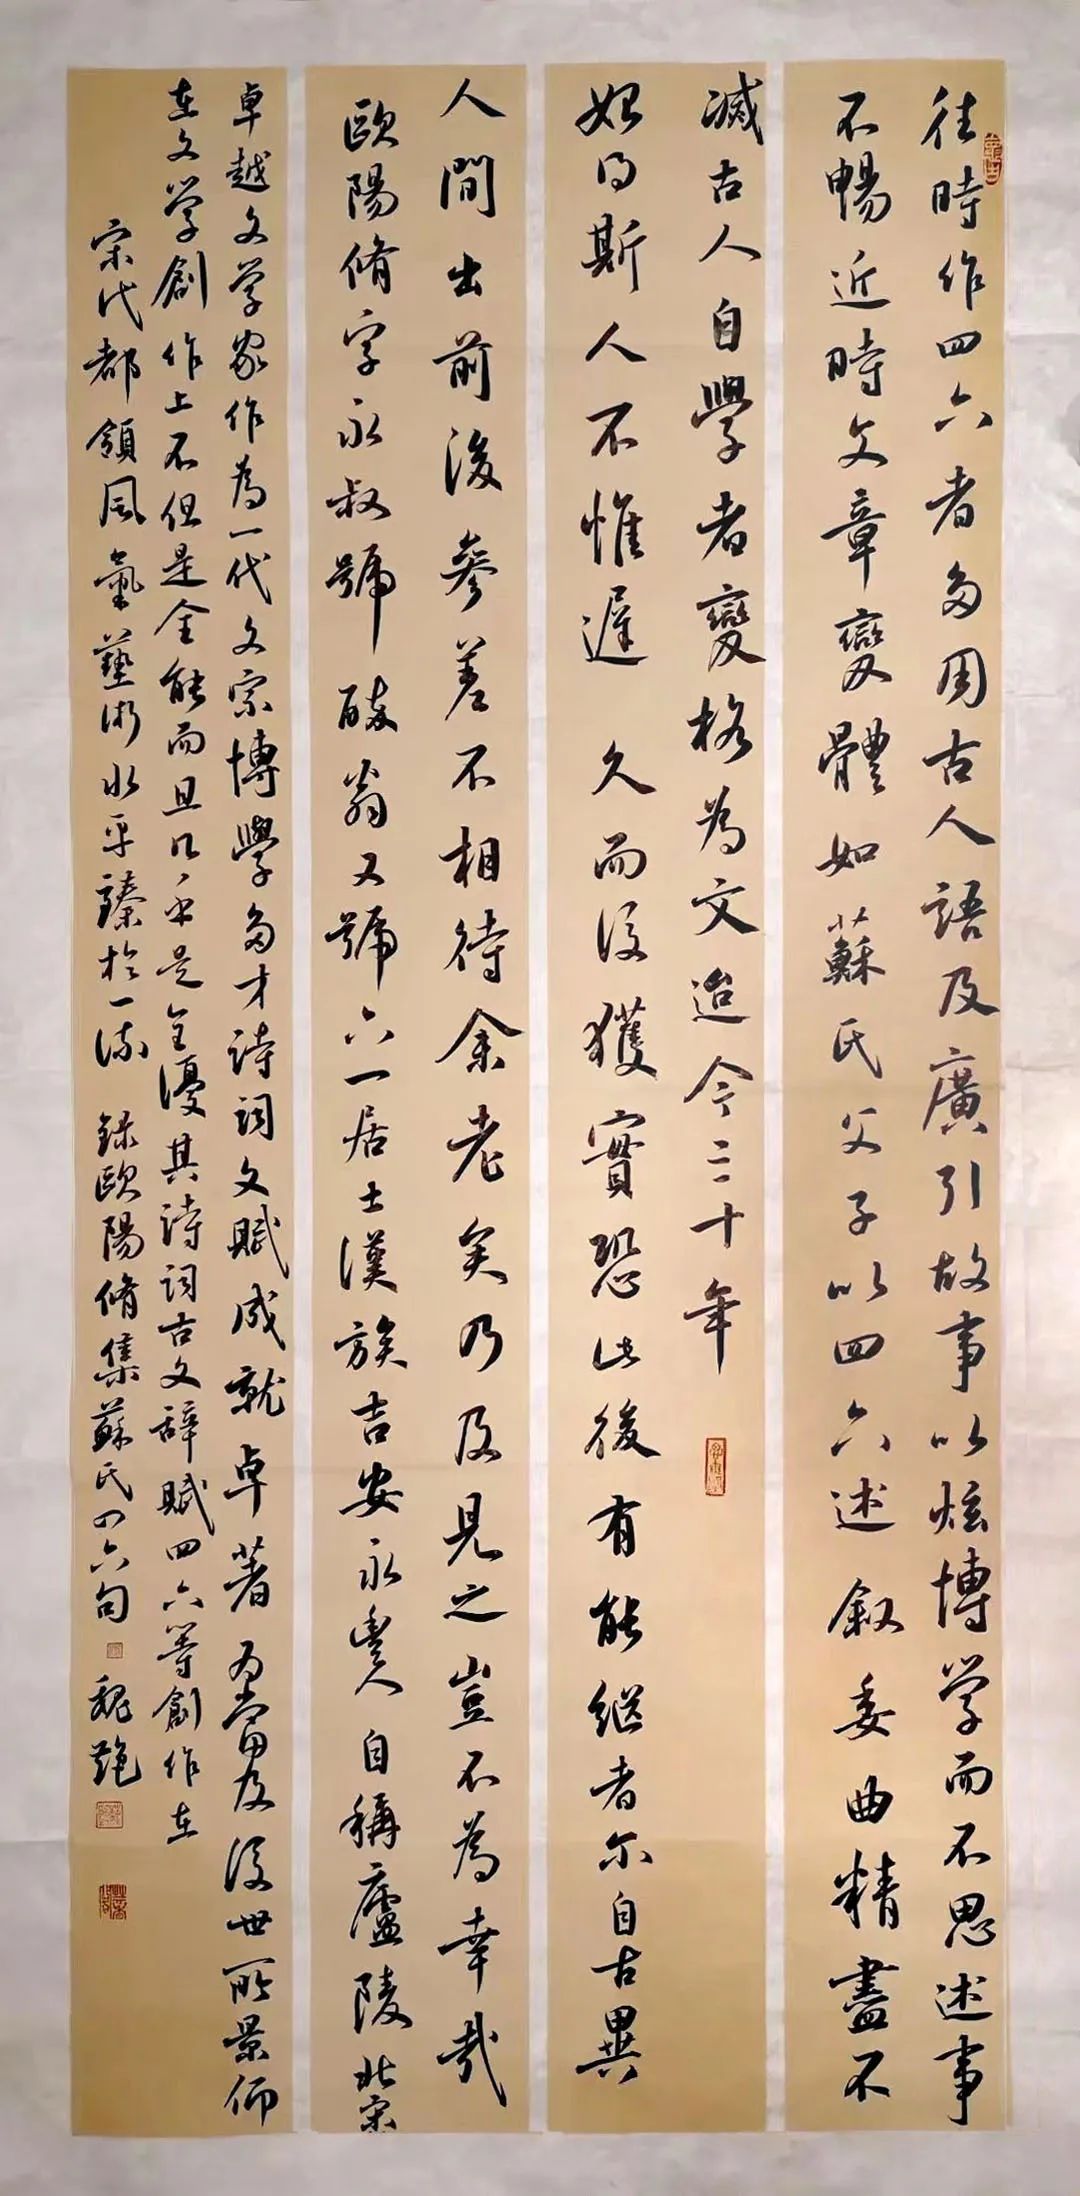 往時作四六者多用古人語及廣引故事以炫博学而不思述事
不暢近時文章變體如蘇氏父子以四六述叙委曲精盡不
减古人自學者變格為文迨今三十年
始得斯人不惟遲久而後獲實恐此後有能继者尔自古異
人間出前後參差不相待余老矣乃及見之豈不為幸哉
歐陽脩字永叔號醉翁又號六一居士漢族吉安永豐人自稱廬陵北宋
卓越文学家作為一代文宗博學多才詩詞文賦成就卓著为當及後世所景仰
在文学創作上不但是全能而且几乎是全優其詩詞古文辞賦四六等創作在
宋代都領風氣藝術水平臻於一流 錄歐陽脩集蘇氏四六句 魏艳